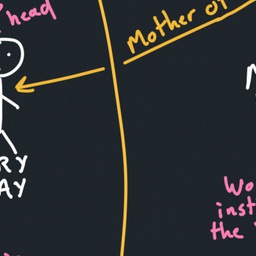 head
Mother of
RY
AY
Wo
inst
the